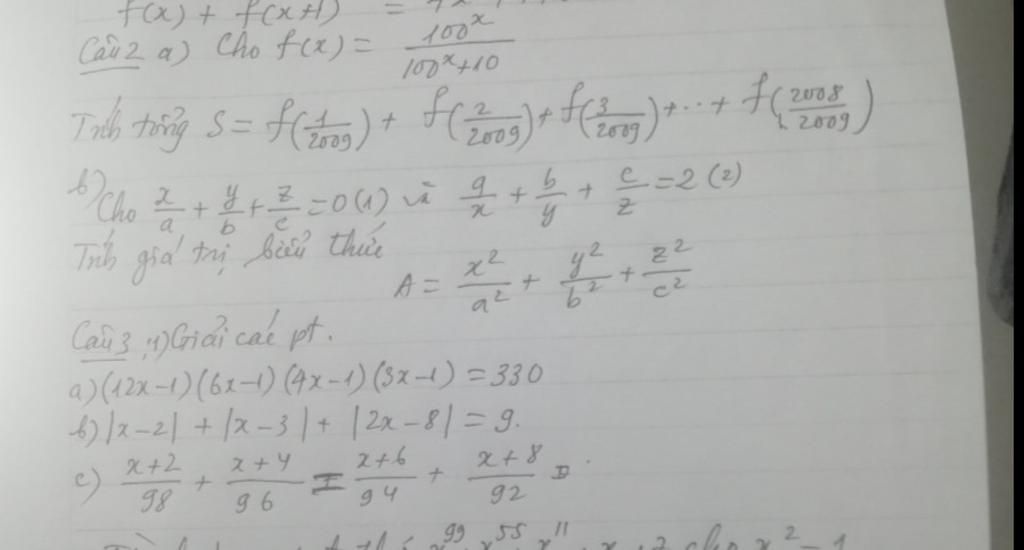 f(x) + f(x+1) =
Câu 2 a) Cho f(x) = 100^x / (100^x + 10)
Tính tổng S = f(1/2009) + f(2/2009) + f(3/2009) + ... + f(2008/2009)
b) Cho x/a + y/b + z/c = 0 (1) và a/x + b/y + c/z = 2 (2)
Tính giá trị biểu thức
A = x²/a² + y²/b² + z²/c²
Câu 3, 1) Giải các pt.
a) (12x-1)(6x-1)(4x-1)(3x-1) = 330
b) |x-2| + |x-3| + |2x-8| = 9.
c) (x+2)/98 + (x+4)/96 = (x+6)/94 + (x+8)/92
x^99 x^55 x^11 x cho x² - 1